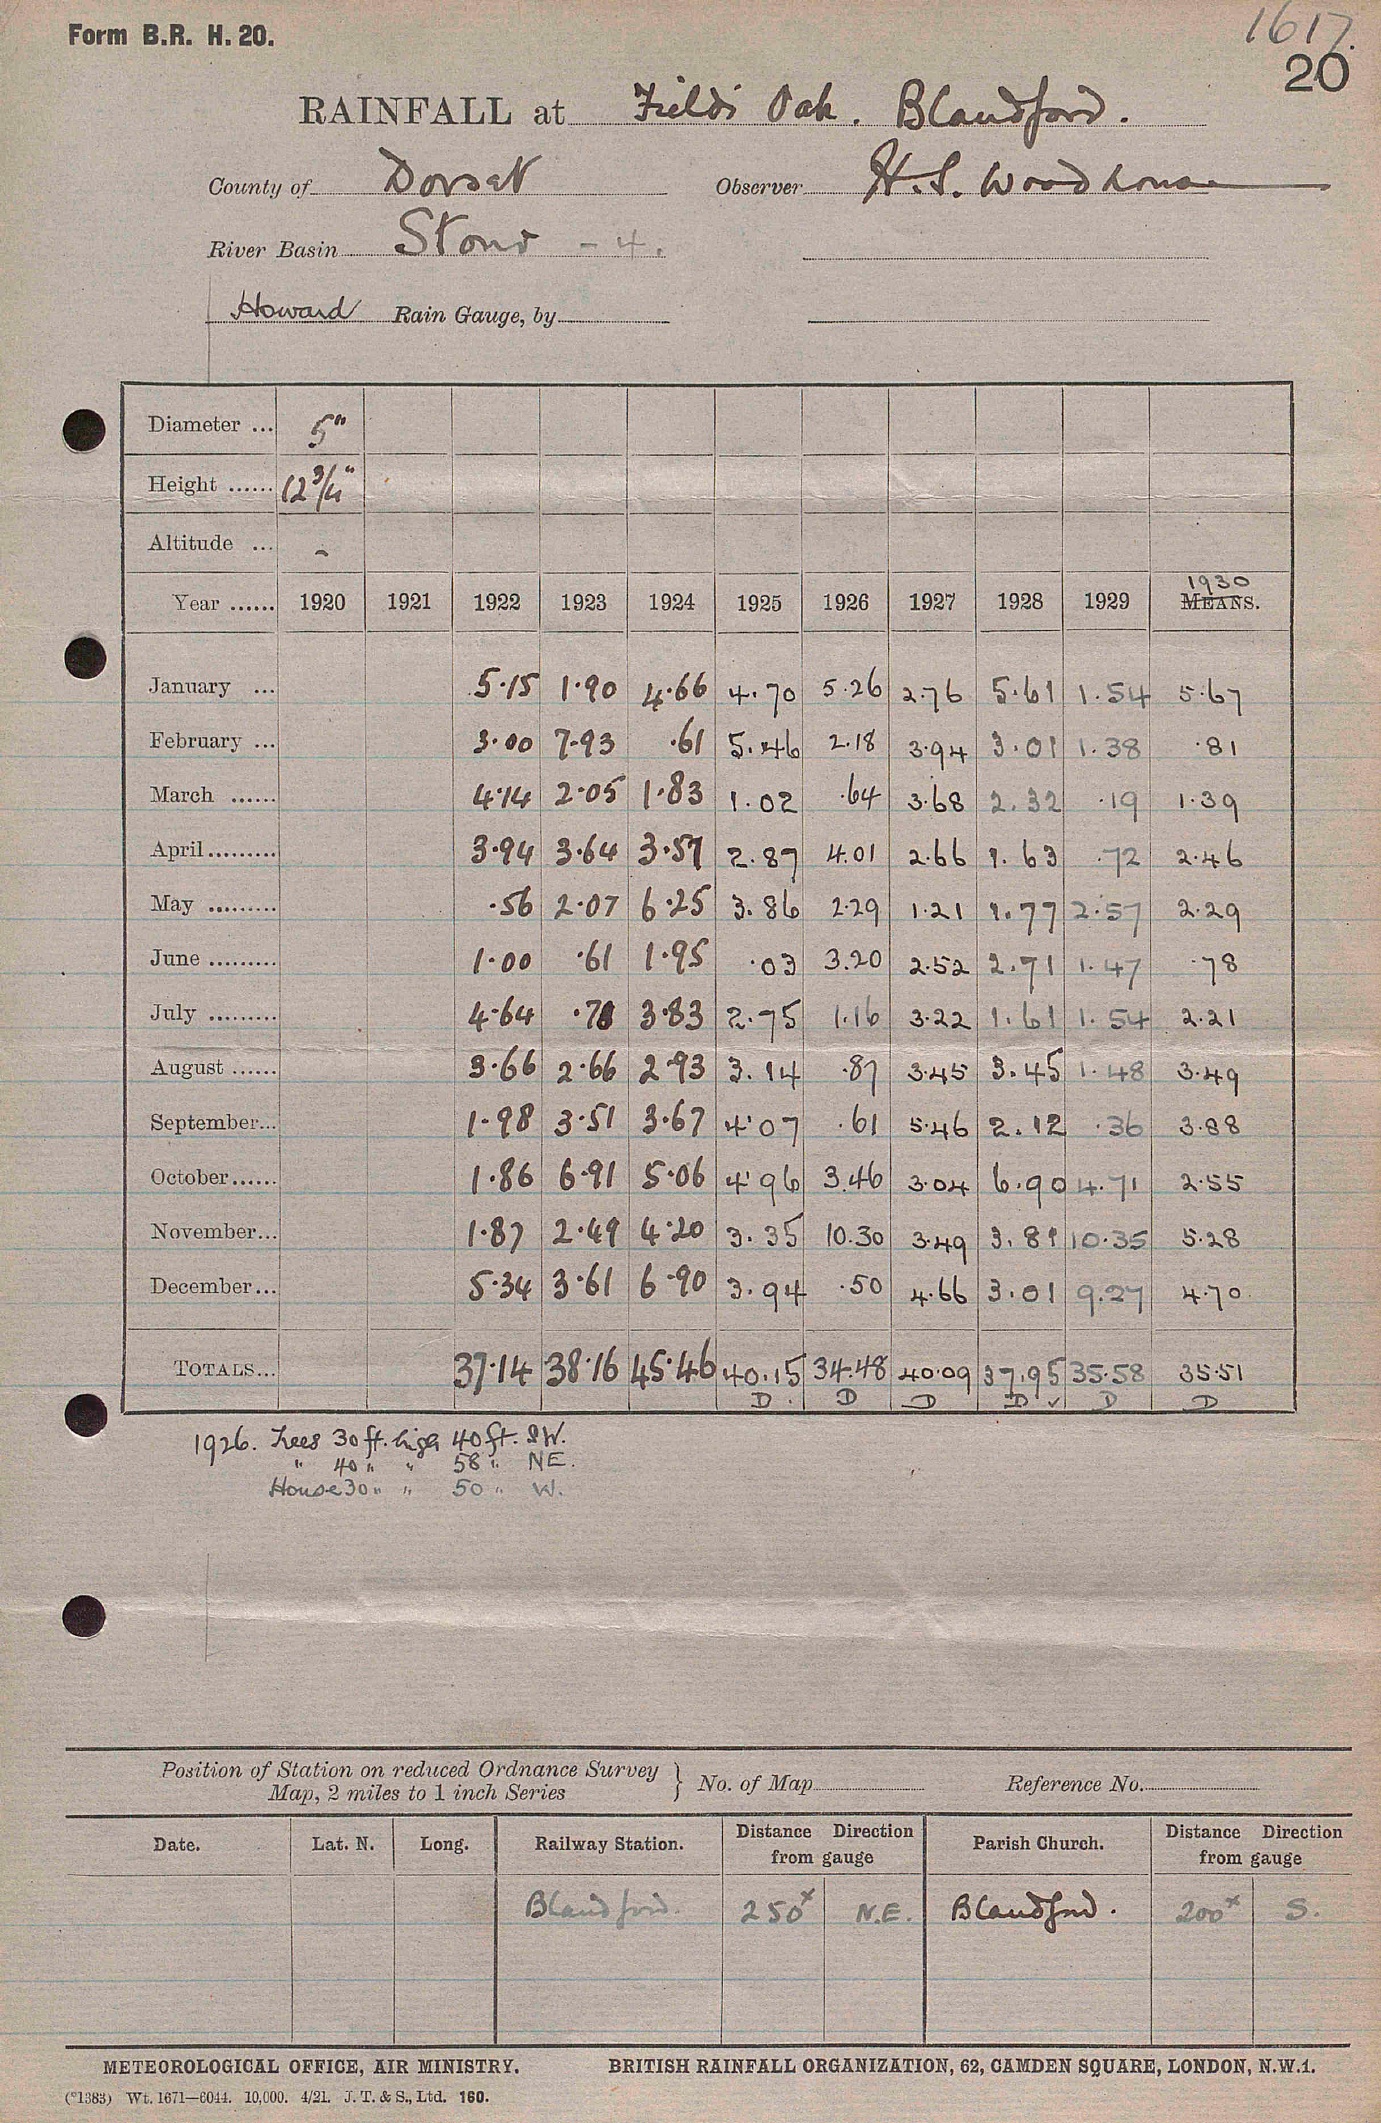 Form B.R. H. 20.
1617.
20
RAINFALL at Fields Oak. Blandford.
County of Dorset Observer H.S. Woodhouse
River Basin Stour - 4.
Howard Rain Gauge, by
Diameter ... 5"
Height ...... 12 3/4"
Altitude ... -
1930
Year ...... 1920 1921 1922 1923 1924 1925 1926 1927 1928 1929 MEANS.
January ... 5.15 1.90 4.66 4.70 5.26 2.76 5.61 1.54 5.67
February ... 3.00 7.93 .61 5.46 2.18 3.94 3.01 1.38 .81
March ...... 4.14 2.05 1.83 1.02 .64 3.68 2.32 .19 1.39
April ......... 3.94 3.64 3.57 2.87 4.01 2.66 1.63 .72 2.46
May ......... .56 2.07 6.25 3.86 2.29 1.21 1.77 2.57 2.29
June ......... 1.00 .61 1.95 .03 3.20 2.52 2.71 1.47 .78
July ......... 4.64 .78 3.83 2.75 1.16 3.22 1.61 1.54 2.21
August ...... 3.66 2.66 2.93 3.14 .87 3.45 3.45 1.48 3.49
September... 1.98 3.51 3.67 4.07 .61 5.46 2.12 .36 3.88
October...... 1.86 6.91 5.06 4.96 3.46 3.04 6.90 4.71 2.55
November... 1.87 2.49 4.20 3.35 10.30 3.49 3.81 10.35 5.28
December... 5.34 3.61 6.90 3.94 .50 4.66 3.01 9.27 4.70
TOTALS... 37.14 38.16 45.46 40.15 34.48 40.09 37.95 35.58 35.51
D. D D D ✓ D D
1926. Trees 30 ft. high 40 ft. SW.
" 40 " " 58 " NE.
House 30 " " 50 " W.
Position of Station on reduced Ordnance Survey
Map, 2 miles to 1 inch Series } No. of Map Reference No.
Date. Lat. N. Long. Railway Station. Distance Direction from gauge Parish Church. Distance Direction from gauge
Blandford. 250x N.E. Blandford. 200x S.
METEOROLOGICAL OFFICE, AIR MINISTRY. BRITISH RAINFALL ORGANIZATION, 62, CAMDEN SQUARE, LONDON, N.W.1.
(*1383) Wt. 1671—6044. 10,000. 4/21. J. T. & S., Ltd. 160.